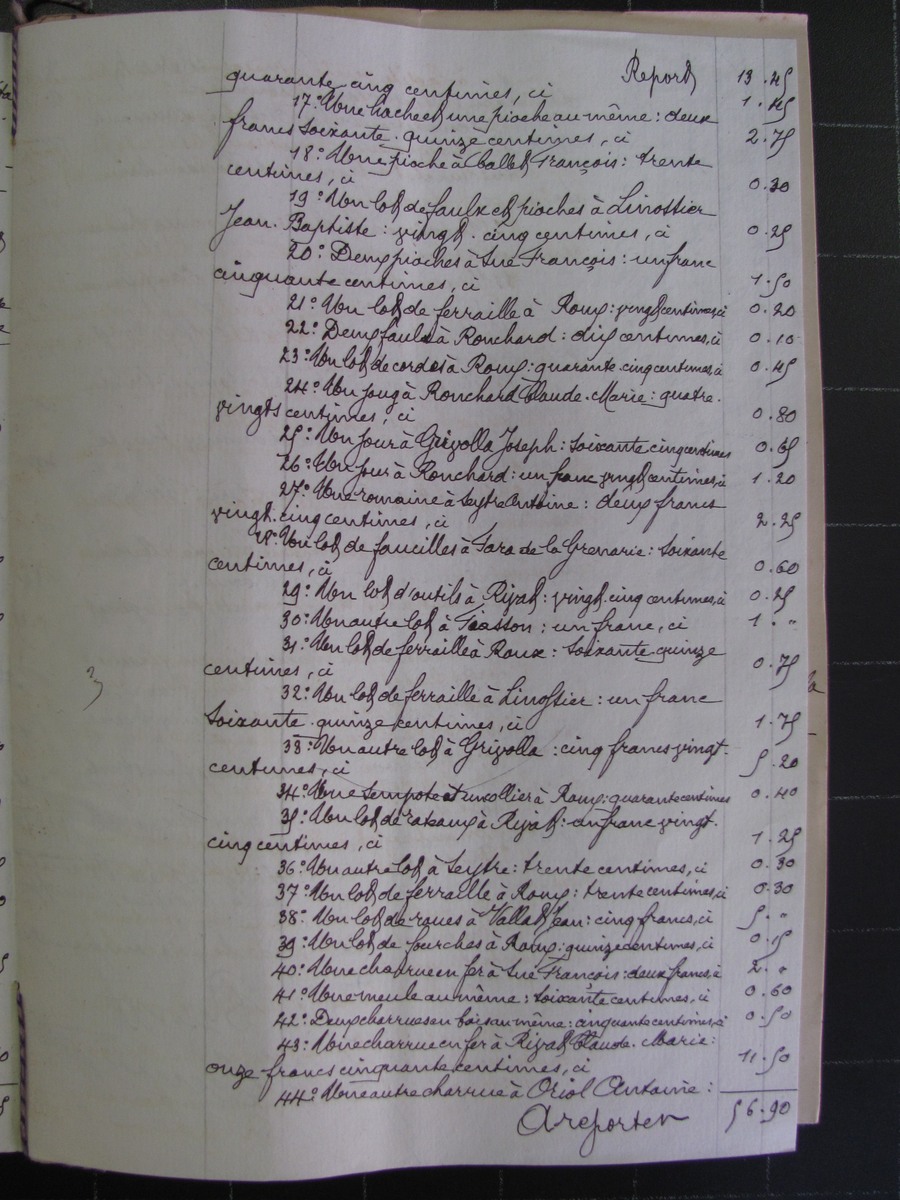 Report 13.45
quarante cinq centimes, ci 1.45
17° Une hache et une pioche au même : deux
francs soixante-quinze centimes, ci 2.75
18° Une pioche à Vallet François : trente
centimes, ci 0.30
19° Un lot de faulx et pioches à Linossier
Jean-Baptiste : vingt-cinq centimes, ci 0.25
20° Deux pioches à Sué François : un franc
cinquante centimes, ci 1.50
21° Un lot de ferraille à Roux : vingt centimes, ci 0.20
22° Deux faulx à Ronchard : dix centimes, ci 0.10
23° Un lot de cordes à Roux : quarante-cinq centimes, ci 0.45
24° Un joug à Ronchard Claude-Marie : quatre-
vingts centimes, ci 0.80
25° Un jour à Grizolla Joseph : soixante cinq centimes 0.65
26° Un jour à Ronchard : un franc vingt centimes, ci 1.20
27° Une romaine à Seytre Antoine : deux francs
vingt-cinq centimes, ci 2.25
28° Un lot de faucilles à Jara de la Grenarie : soixante
centimes, ci 0.60
29° Un lot d'outils à Rizat : vingt-cinq centimes, ci 0.25
30° Un autre lot à Fiasson : un franc, ci 1. "
31° Un lot de ferraille à Roux : soixante quinze
centimes, ci 0.75
32° Un lot de ferraille à Linossier : un franc
soixante-quinze centimes, ci 1.75
33° Un autre lot à Grizolla : cinq francs vingt-
centimes, ci 5.20
34° Une et un collier à Roux : quarante centimes 0.40
35° Un lot de rateaux à Rizat : un franc vingt-
cinq centimes, ci 1.25
36° Un autre lot à Seytre : trente centimes, ci 0.30
37° Un lot de ferraille à Roux : trente centimes, ci 0.30
38° Un lot de roues à Vallat Jean : cinq francs, ci 5. "
39° Un lot de fourches à Roux : quinze centimes, ci 0.15
40° Une charrue en fer à Sué François : deux francs, ci 2. "
41° Une meule au même : soixante centimes, ci 0.60
42° Deux charrues en bois au même : cinquante centimes, ci 0.50
43° Une charrue en fer à Rizat Claude-Marie :
onze francs cinquante centimes, ci 11.50
44° Une autre charrue à Oriol Antoine :
A reporter 56.90